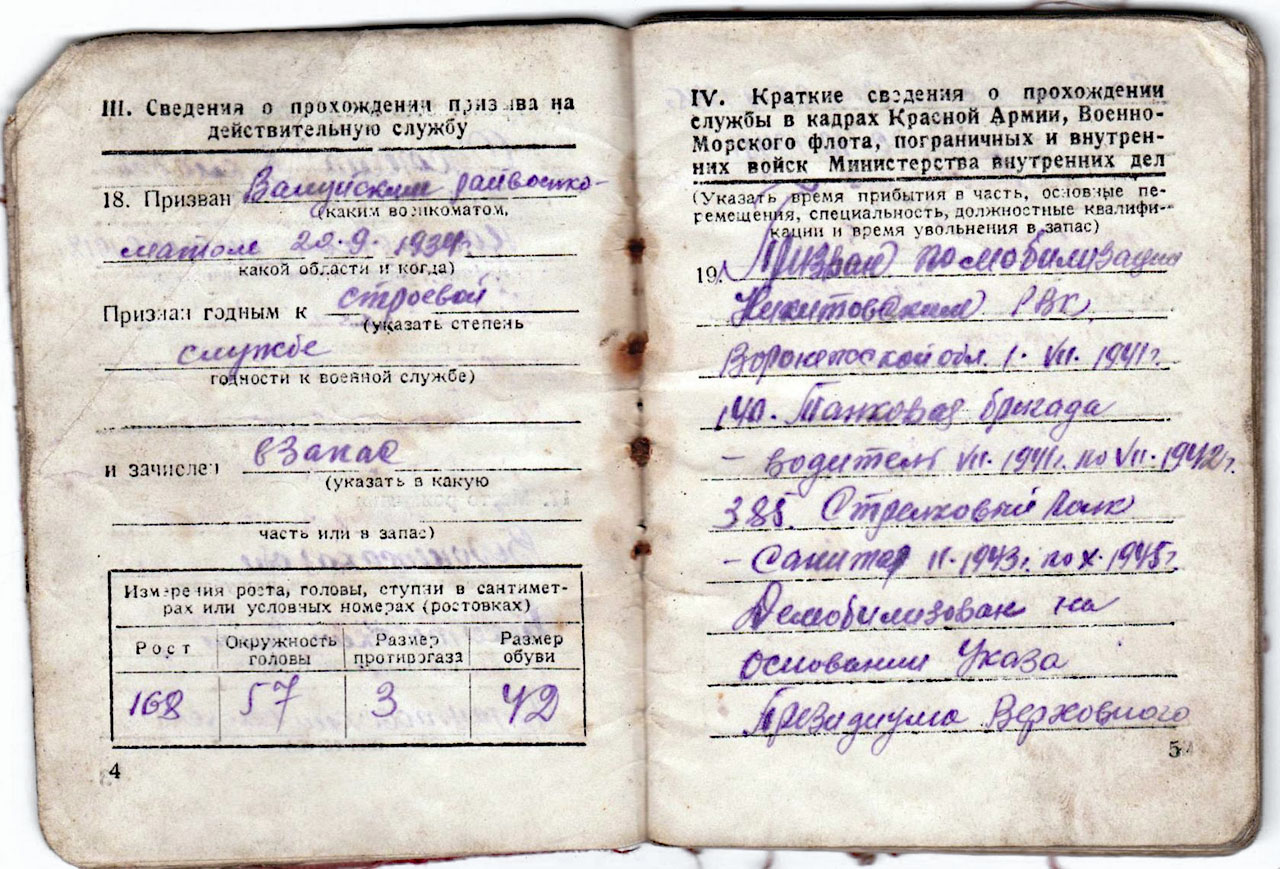 III. Сведения о прохождении призыва на
действительную службу
18. Призван Валуйским райвоенко-
(каким военкоматом,
матом 20.9. 1934г.
какой области и когда)
Признан годным к строевой
(указать степень
службе
годности к военной службе)
и зачислен в запас
(указать в какую
часть или в запас)
Измерения роста, головы, ступни в сантимет-
рах или условных номерах (ростовках)
Рост Окружность головы Размер противогаза Размер обуви
168 57 3 42
4
IV. Краткие сведения о прохождении
службы в кадрах Красной Армии, Военно-
Морского флота, пограничных и внутрен-
них войск Министерства внутренних дел
(Указать время прибытия в часть, основные пе-
ремещения, специальность, должностные квалифи-
кации и время увольнения в запас)
19. Призван по мобилизации
Никитовским РВК
Воронежской обл. 1. VII. 1941г.
140. Танковая бригада
- водитель VII. 1941г. по VII. 1942г.
385. Стрелковый Полк
- Санитар II. 1943г. по X. 1945г.
Демобилизован на
основании Указа
Президиума Верховного
5